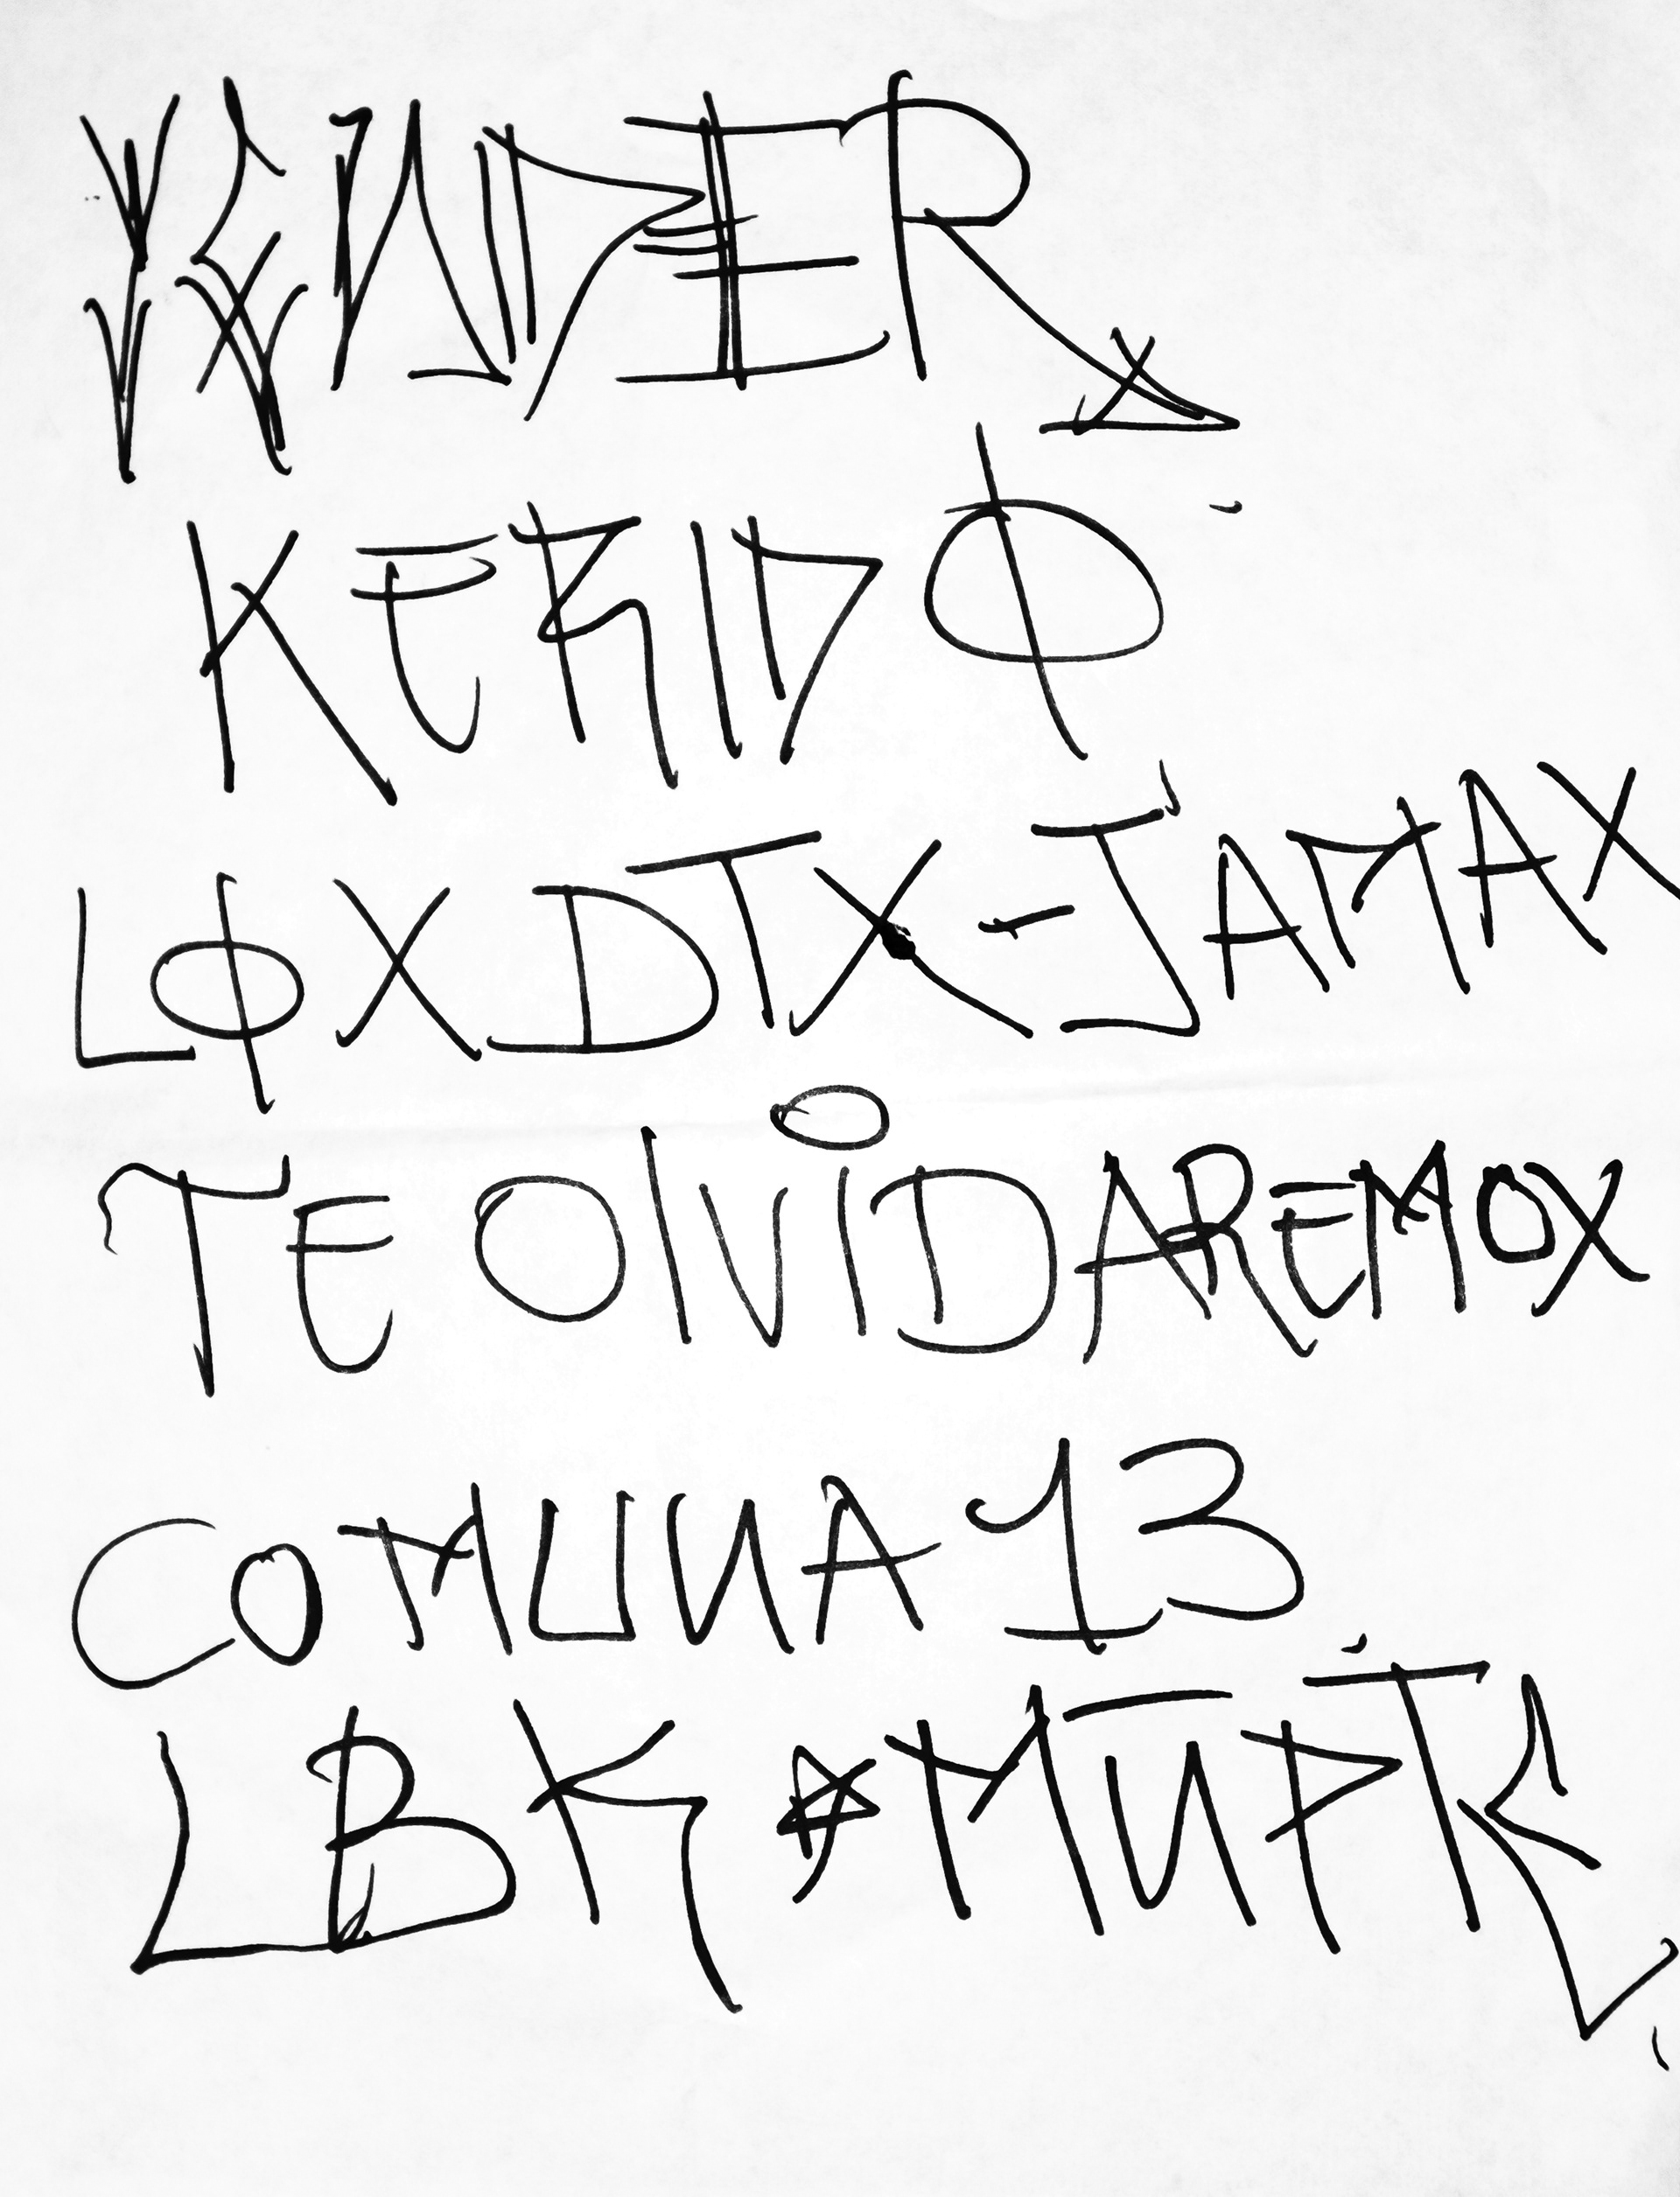 YENDER
KERIDO
LOX DTX-JAMAX
TE OlViDAREMOX
COMUNA 13
LBK ☆ MUPTK